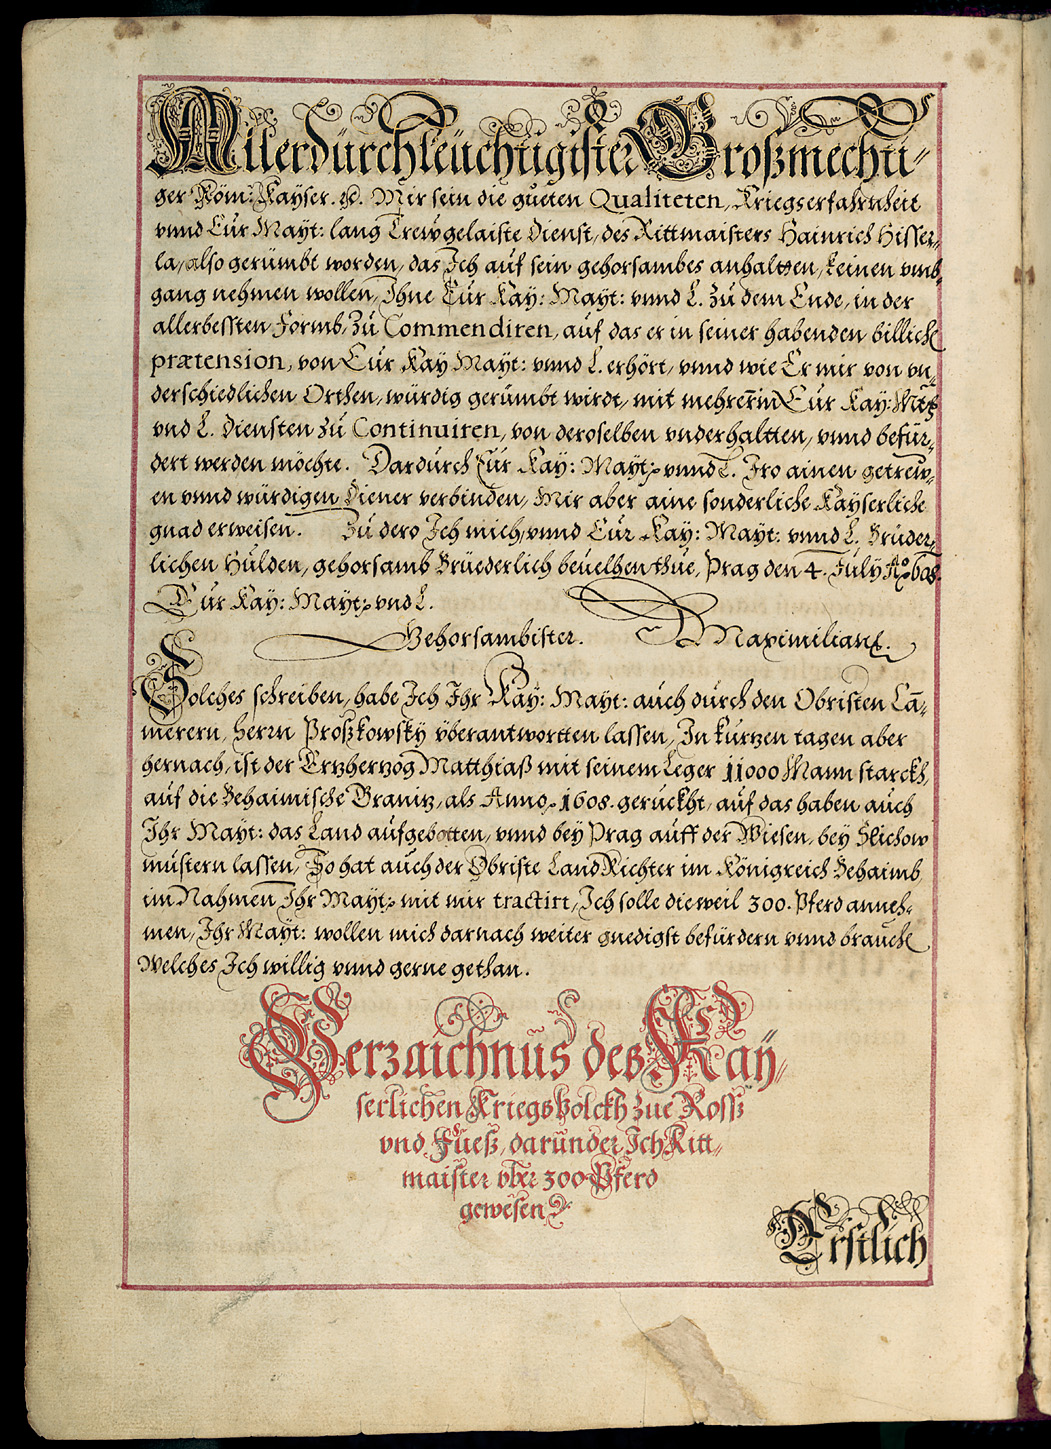 Allerdurchleüchtigister Großmechti-
ger Röm: Kayser. ꝛc. Mir sein die gueten Qualiteten, Kriegserfahrnheit
vnnd Eur Mayt: lang Trewgelaiste Dienst, des Rittmaisters Hainrich Hisser-
la, also gerümbt worden, das Ich auf sein gehorsambes anhaltten, keinen vmb-
gang nehmen wollen, Ihne Eur Kay: Mayt: vnnd L. zu dem Ende, in der
allerbessten Formb, zu Commendiren, auf das er in seiner habenden billich
prætension, von Eur Kay Mayt: vnnd L. erhört, vnnd wie Er mir von vn-
derschiedlichen Orthen, würdig gerümbt wirdt, mit mehrerm Eur Kay: Mtt:
vnd L. Diensten zu Continuiren, von deroselben vnderhaltten, vnnd befür-
dert werden möchte. Dardurch Eur Kay: Mayt: vnnd L. Iro ainen getrew-
en vnnd würdigen Diener verbinden, Mir aber aine sonderliche Kayserliche
gnad erweisen. Zu dero Ich mich, vnnd Eur Kay: Mayt: vnnd L. Brüder-
lichen Hulden, gehorsamb Brüederlich beuelhen thue, Prag den 4. July Ao. 608.
Eur Kay: Mayt: vnd L.
Gehorsambister. Maximilian
Solches schreiben, habe Ich Ihr Kay: Mayt: auch durch den Obristen Cā-
merern, Herrn Proßkowsky vberantwortten lassen, In kurtzen tagen aber
hernach, ist der Ertzhertzog Matthiaß mit seinem Leger 11000 Mann starckh,
auf die Behaimische Granitz, als Anno. 1608. geruckht, auf das haben auch
Ihr Mayt: das Land aufgebotten, vnnd bey Prag auff der Wiesen, bey Slichow
mustern lassen, So hat auch der Obriste LandRichter im Königreich Behaimb,
im Nahmen Ihr Mayt: mit mir tractirt, Ich solle dieweil 300. Pferd anneh-
men, Ihr Mayt: wollen mich darnach weiter gnedigst befürdern vnnd brauch
Welches Ich willig vnnd gerne gethan.
Verzaichnüs des Kaÿ-
serlichen Kriegs Volckh zue Rosß
vnd Fueß, darunder Ich Ritt-
maister vber 300 Pferd
gewesen
Erstlich